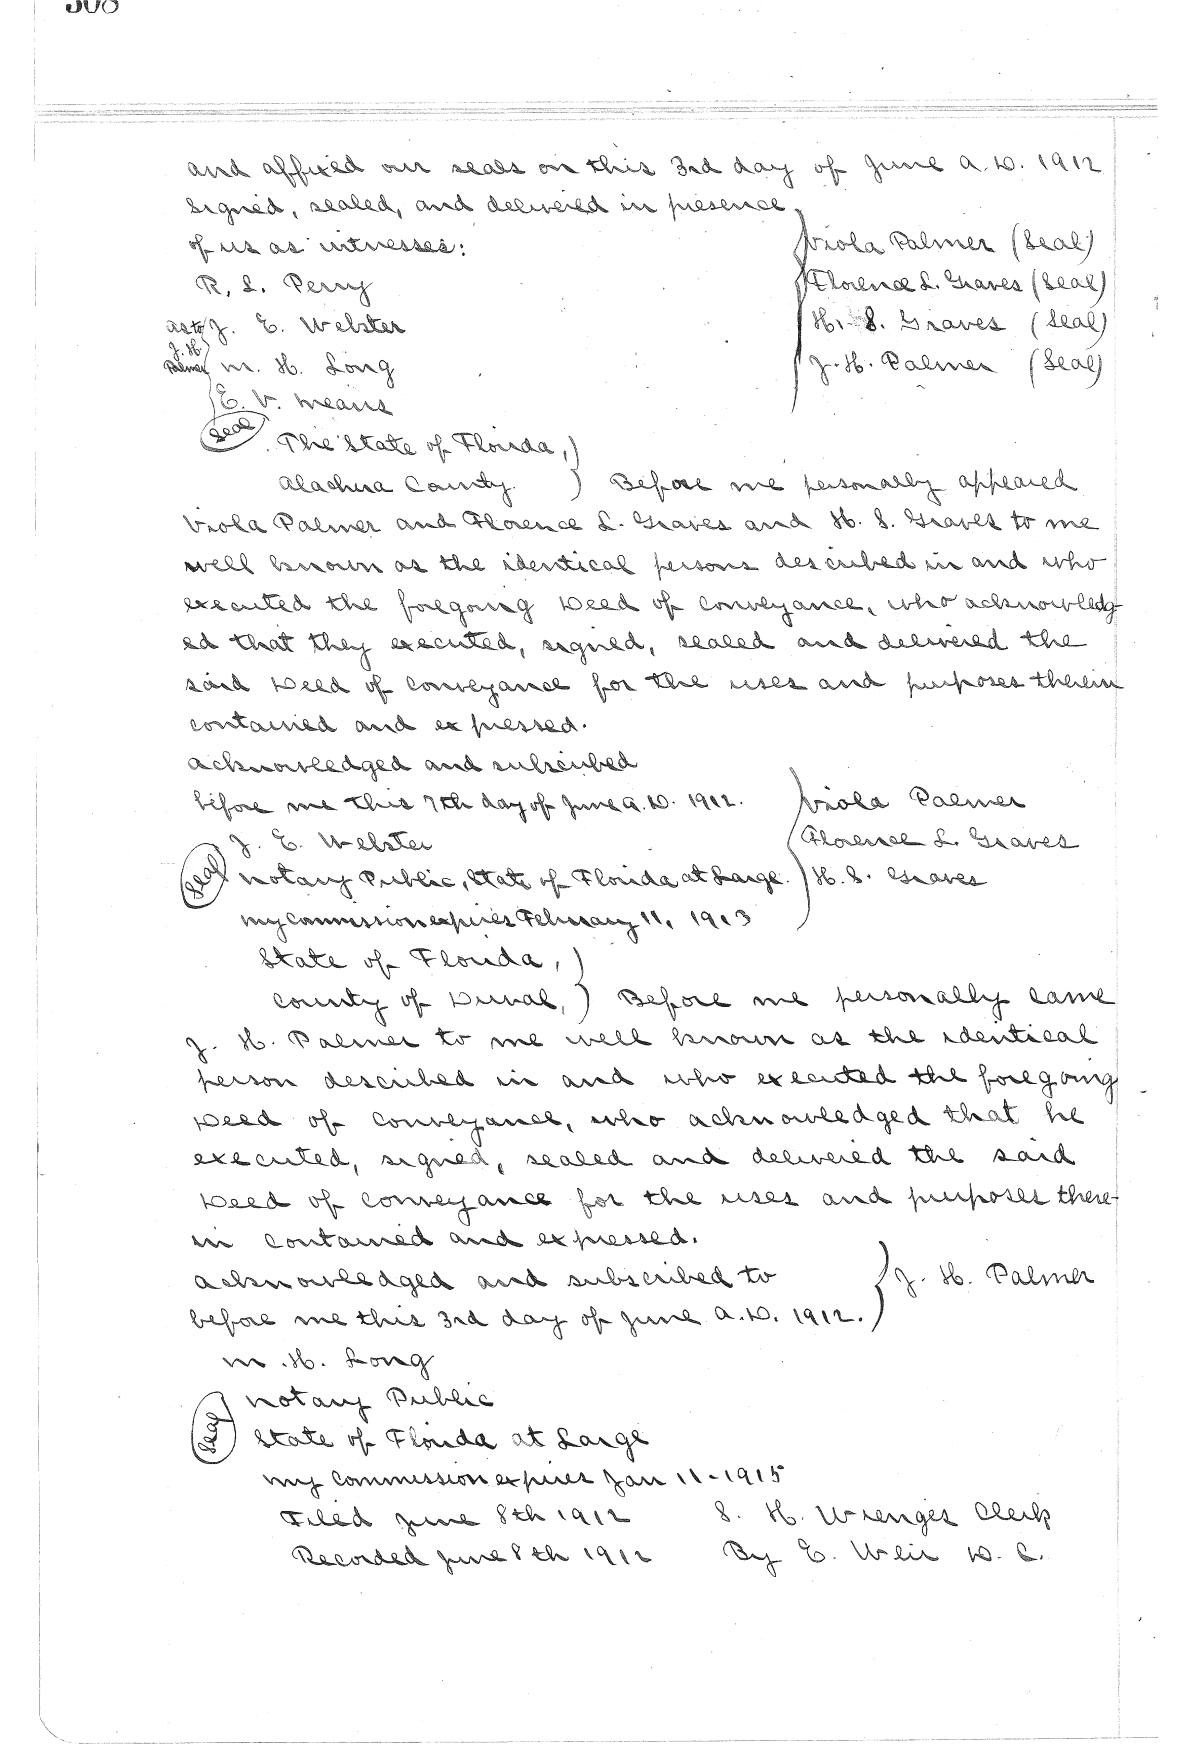 308
and affixed our seals on this 3rd day of June A.D. 1912
Signed, sealed, and delivered in presence
of us as witnesses: Viola Palmer (Seal)
R. L. Perry Florence L. Graves (Seal)
as to J. E. Webster H. S. Graves (Seal)
J. H. Palmer M. H. Long J. H. Palmer (Seal)
E. V. Means
Seal The State of Florida,)
Alachua County. ) Before me personally appeared
Viola Palmer and Florence L. Graves and H. S. Graves to me
well known as the identical persons described in and who
executed the foregoing Deed of Conveyance, who acknowledg-
ed that they executed, signed, sealed and delivered the
said Deed of Conveyance for the uses and purposes therein
contained and expressed.
Acknowledged and subscribed
before me this 7th day of June A.D. 1912. Viola Palmer
J. E. Webster Florence L. Graves
Seal Notary Public, State of Florida at Large. H. S. Graves
My commission expires February 11, 1913
State of Florida, )
County of Duval, ) Before me personally came
J. H. Palmer to me well known as the identical
person described in and who executed the foregoing
Deed of Conveyance, who acknowledged that he
executed, signed, sealed and delivered the said
Deed of Conveyance for the uses and purposes there-
in contained and expressed.
Acknowledged and subscribed to J. H. Palmer
before me this 3rd day of June A.D. 1912.
M. H. Long
Notary Public
Seal State of Florida at Large
My commission expires Jan 11-1915
Filed June 8th 1912 S. H. Wienges Clerk
Recorded June 8th 1912 By E. Weir D. C.